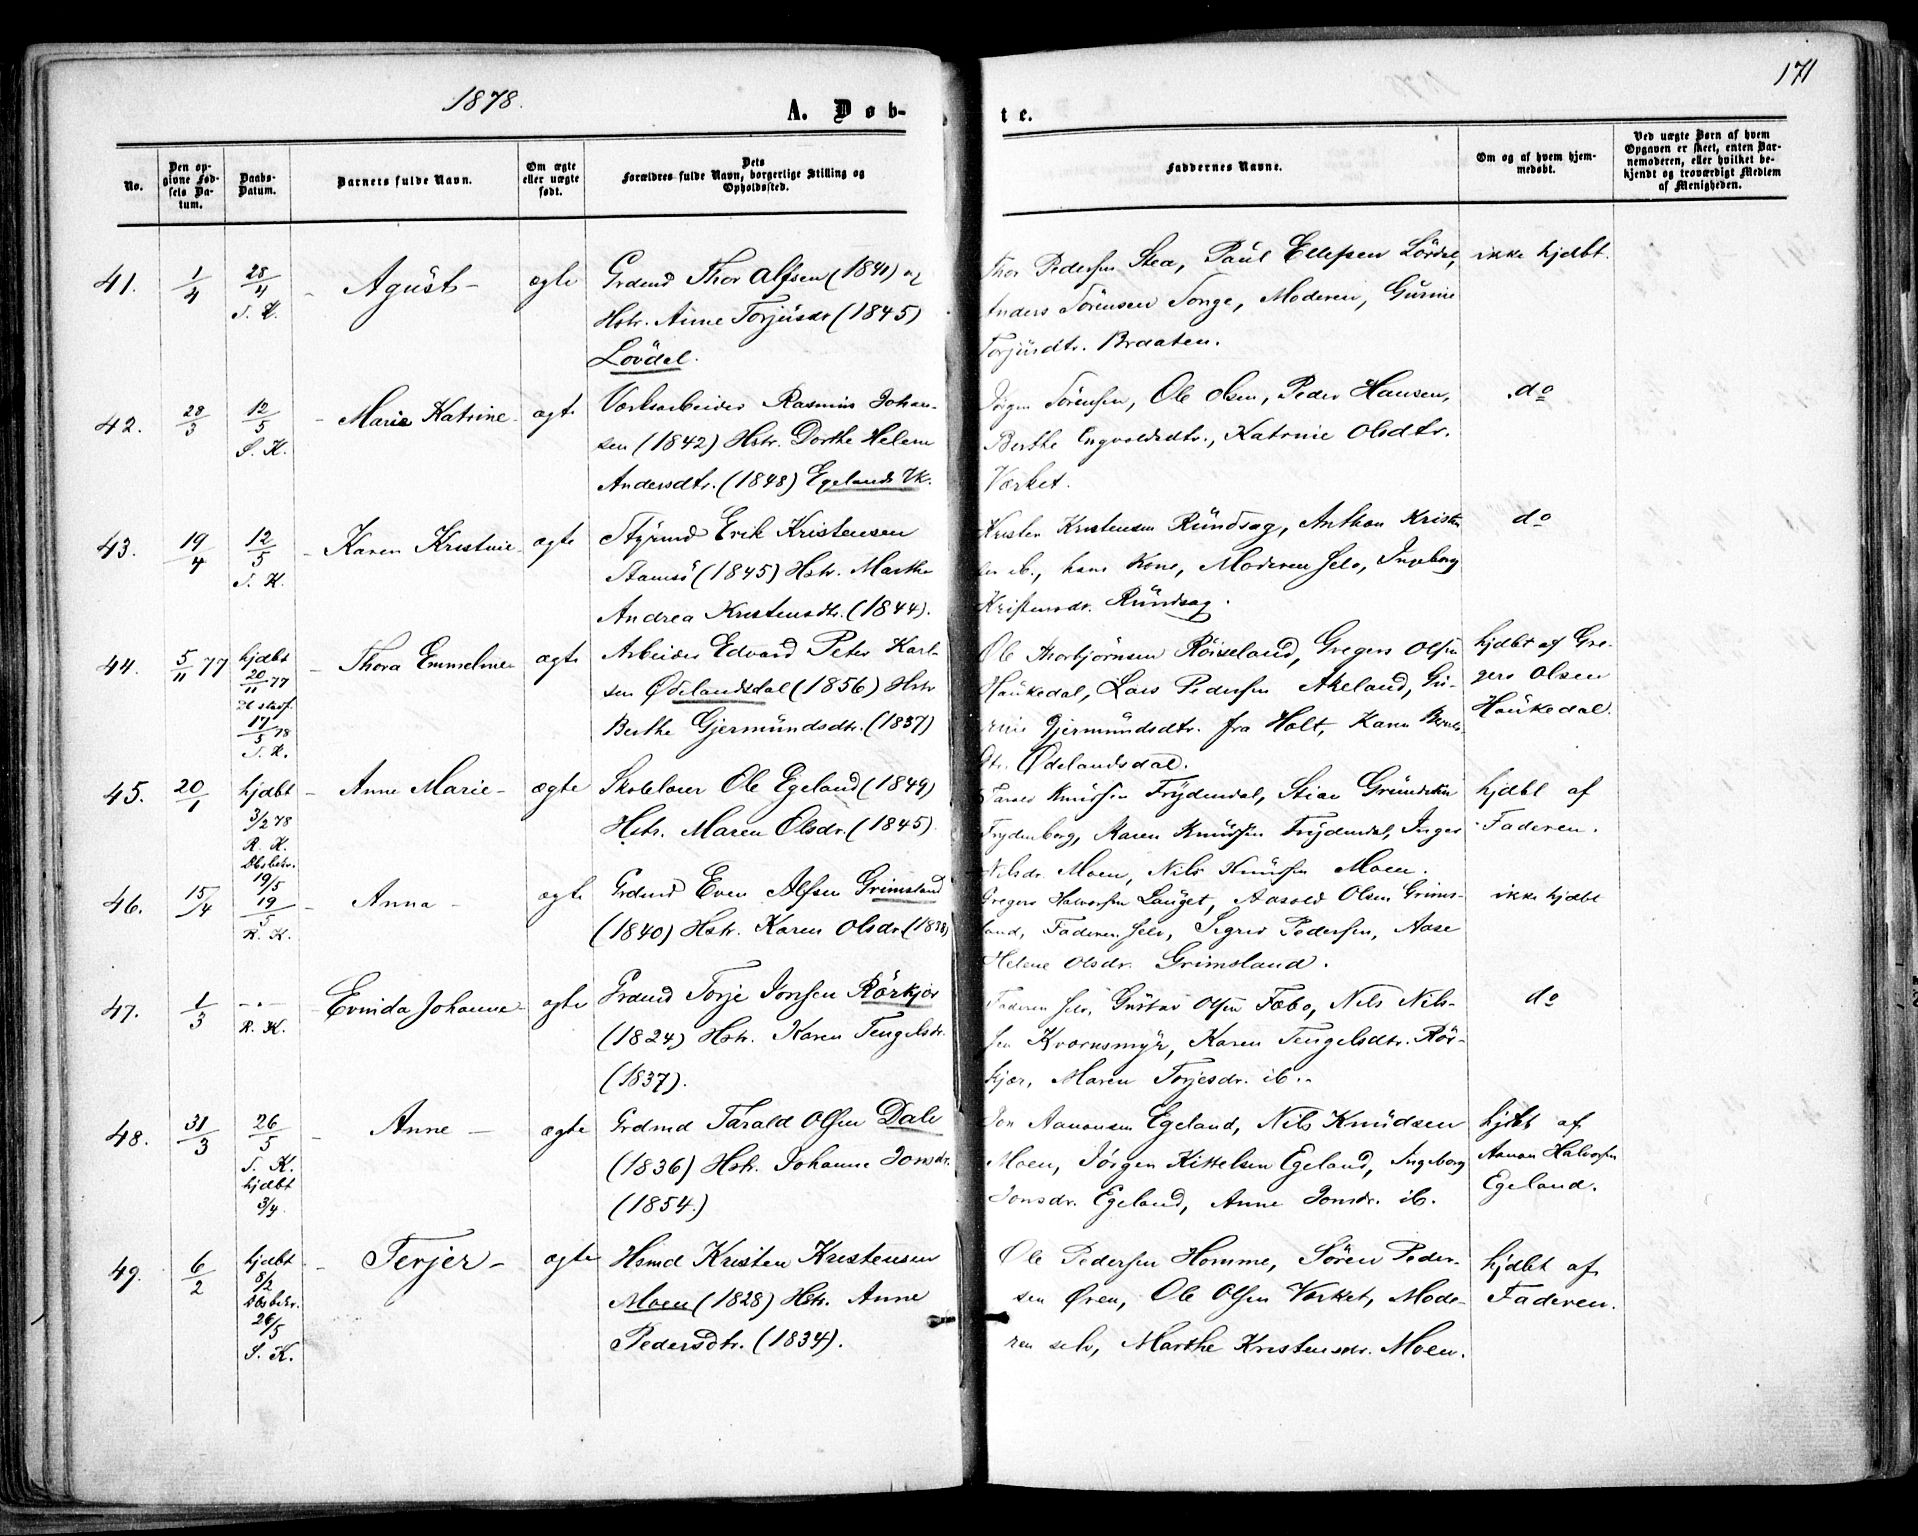 1878.
171
A. Døb-
te.
No.
Den op-
givne Fød-
sels Da-
tum.
Daabs-
Datum.
Barnets fulde Navn.
Om ægte
eller uægte
født.
Dets
Forældres fulde Navn, borgerlige Stilling og
Opholdssted.
Faddernes Navne.
Om og af hvem hjem-
medøbt.
Ved uægte Børn af hvem
Opgaven er skeet, enten Bar-
nemoderen, eller hvilket be-
kjendt og troværdigt Medlem
af Menigheden.
41. 1/4 28/4 T. K. Agust - ægte
Grdmd Thor Alfsen (1840) og
Hstr. Anne Torjusdr (1845)
Lövdal.
Thor Pedersen Stea, Paul Ellefsen Lövdal,
Anders Sørensen Songe, Moderen, Gunne
Torjusdtr. Braaten.
ikke hjdbt.
42. 28/3 12/5 S. K. - Marie Katrine - ægte
Værksarbeider Rasmus Johan-
sen (1842) Hstr. Dorthe Helene
Andersdtr. (1848) Egelands Vk.
Jörgen Sörensen, Ole Olsen, Peder Hansen,
Berthe Engvoldsdtr., Katrine Olsdtr.
Værket.
do
43. 19/4 12/5 T. K. - Karen Kristine - ægte
Styrmd Erik Kristensen
Stamsö (1845) Hstr. Marthe
Andrea Kristensdtr. (1844).
Kristen Kristensen Rundsag, Anthon Kristen
sen ib., hans Kone, Moderen selv, Ingeborg
Kristensdr. Rundsag.
do
44. 5/11 77 hjdbt 20/11 77 17/5 78 T. K. - Thora Emmeline ægte
Arbeider Edvard Peter Karl-
sen Ødelandsdal (1856) Hstr
Berthe Gjermundsdtr. (1837)
Ole Thorbjörnsen Röiseland, Gregers Olsen
Haukedal, Lars Pedersen Akeland, Gu-
rine Gjermundsdtr. fra Holt, Karen
dtr. Ødelandsdal.
hjdbt af Gre-
gers Olsen
Haukedal.
45. 20/1 hjdbt 3/2 78 R. K. Dbsbekr. 19/5 - Anne Marie - ægte
Skolelærer Ole Egeland (1849)
Hstr. Maren Olsdr. (1845)
Tarald Knudsen Frydendal, Stine
Frydenborg, Karen Knudsen Frydendal, Inger
Nilsdr. Moen, Nils Knudsen Moen.
hjdbt af
Faderen.
46. 15/4 19/5 R. K. - Anna - ægte
Grdmd Even Alfsen Grimsland
(1840) Hstr. Karen Olsdr (1838)
Gregers Halvorsen Lauget, Aasold Olsen Grims-
land, Faderen selv, Sigrid Pedersen, Aase
Helene Olsdr. Grimsland.
ikke hjdbt
47. 1/3 -.- R. K. - Evinda Johanne - ægte
Grdmd Torje Jonsen Rörkjær
(1824) Hstr. Karen Tengelsdr.
(1837).
Faderen selv, Gustav Olsen Fæbo, Nils Nils-
sen Kvernsmyr, Karen Tengelsdtr. Rör-
kjær, Maren Torjesdr. ib..
do
48. 31/3 26/5 T. K. hjdbt 3/4. - Anne - ægte
Grdmd Tarald Olsen Dale
(1836) Hstr. Johanne Jonsdr.
(1854.)
Jon Aanonsen Egeland, Nils Knudsen
Moen, Jörgen Kittelsen Egeland, Ingeborg
Jonsdr. Egeland, Anne Jonsdr. ib.
hjdbt af
Aanon Halvorsen
Egeland.
49. 6/2 hjdbt 8/2 Dbsbekr. 26/5 S. K. - Terjer - ægte
Hsmd Kristen Kristensen
Moen (1828) Hstr. Anne
Pedersdtr. (1834).
Ole Pedersen Homme, Sören Peder-
sen Øren, Ole Olsen Værket, Mode-
ren selv, Marthe Kristensdr. Moen.
hjdbt af
Faderen.